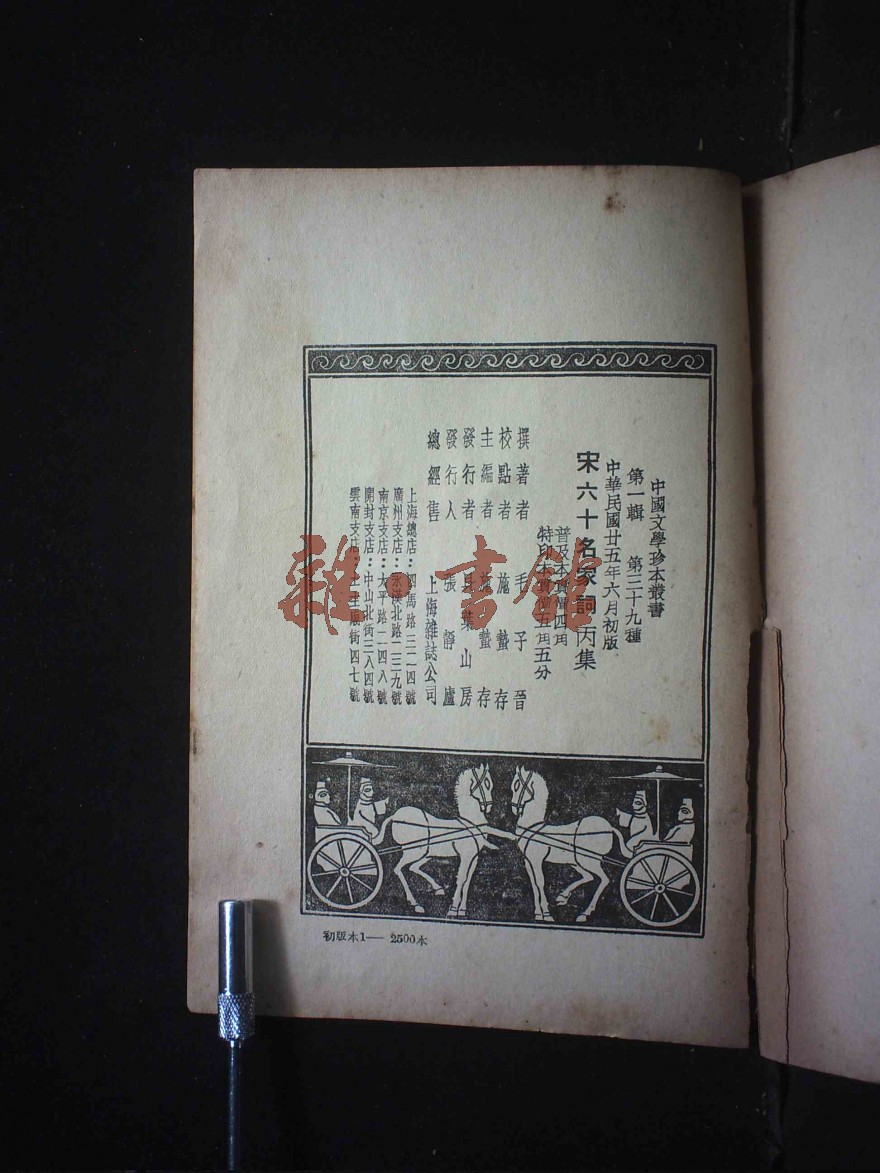 中國文學珍本叢書
第一輯 第三十九種
中華民國廿五年六月初版
宋六十名家詞丙集
普及本實價四角
特印本實價五角五分
撰著者 毛子晉
校點者 施蟄存
主編者 施蟄存
發行者 貝葉山房
發行人 張靜廬
總經售 上海雜誌公司
上海總店：四馬路三二四號
廣州支店：永漢北路一三九號
南京支店：太平路二四八號
開封支店：中山北街三八四號
雲南支店：街四七號
初版本1—2500本
雜·書館